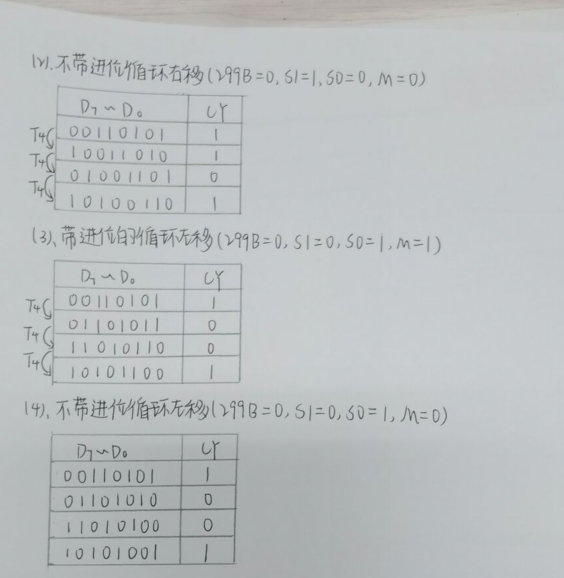 (2). 不带进位循环右移(299B=0, S1=1, S0=0, M=0)
D7~D0 CY
00110101 1
T4 10011010 1
T4 01001101 0
T4 10100110 1
(3)、带进位的循环左移(299B=0, S1=0, S0=1, M=1)
D7~D0 CY
00110101 1
T4 01101011 0
T4 11010110 0
T4 10101100 1
(4)、不带进位循环左移(299B=0, S1=0, S0=1, M=0)
D7~D0 CY
00110101 1
01101010 0
11010100 0
10101001 1